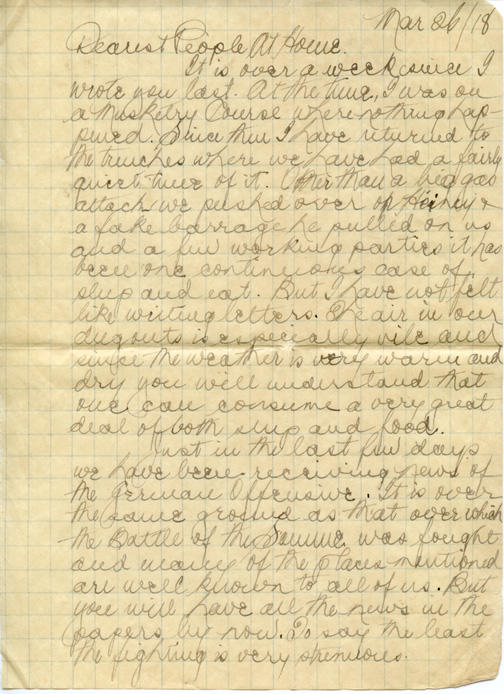 Mar 26/18
Dearest People At Home.
It is over a week since I
wrote you last. At the time, I was on
a Musketry Course where nothing hap-
pened. Since then I have returned to
the trenches where we have had a fairly
quiet time of it. Other than a big gas
attack we pushed over on Heiney &
a fake barrage he pulled on us
and a few working parties it has
been one continuous case of
sleep and eat. But I have not felt
like writing letters. The air in our
dugouts is especially vile and
since the weather is very warm and
dry you will understand that
one can consume a very great
deal of both sleep and food.
Just in the last few days
we have been receiving news of
the German Offensive. It is over
the same ground as that over which
the Battle of the Somme was fought
and many of the places mentioned
are well known to all of us. But
you will have all the news in the
papers by now. To say the least
the fighting is very strenuous.